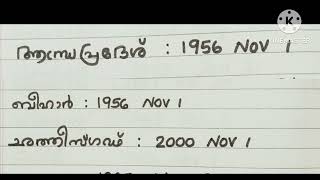 ആന്ധ്രപ്രദേശ് : 1956 NOV 1
ബീഹാർ : 1956 NOV 1
ഛത്തീസ്ഗഡ് : 2000 NOV 1